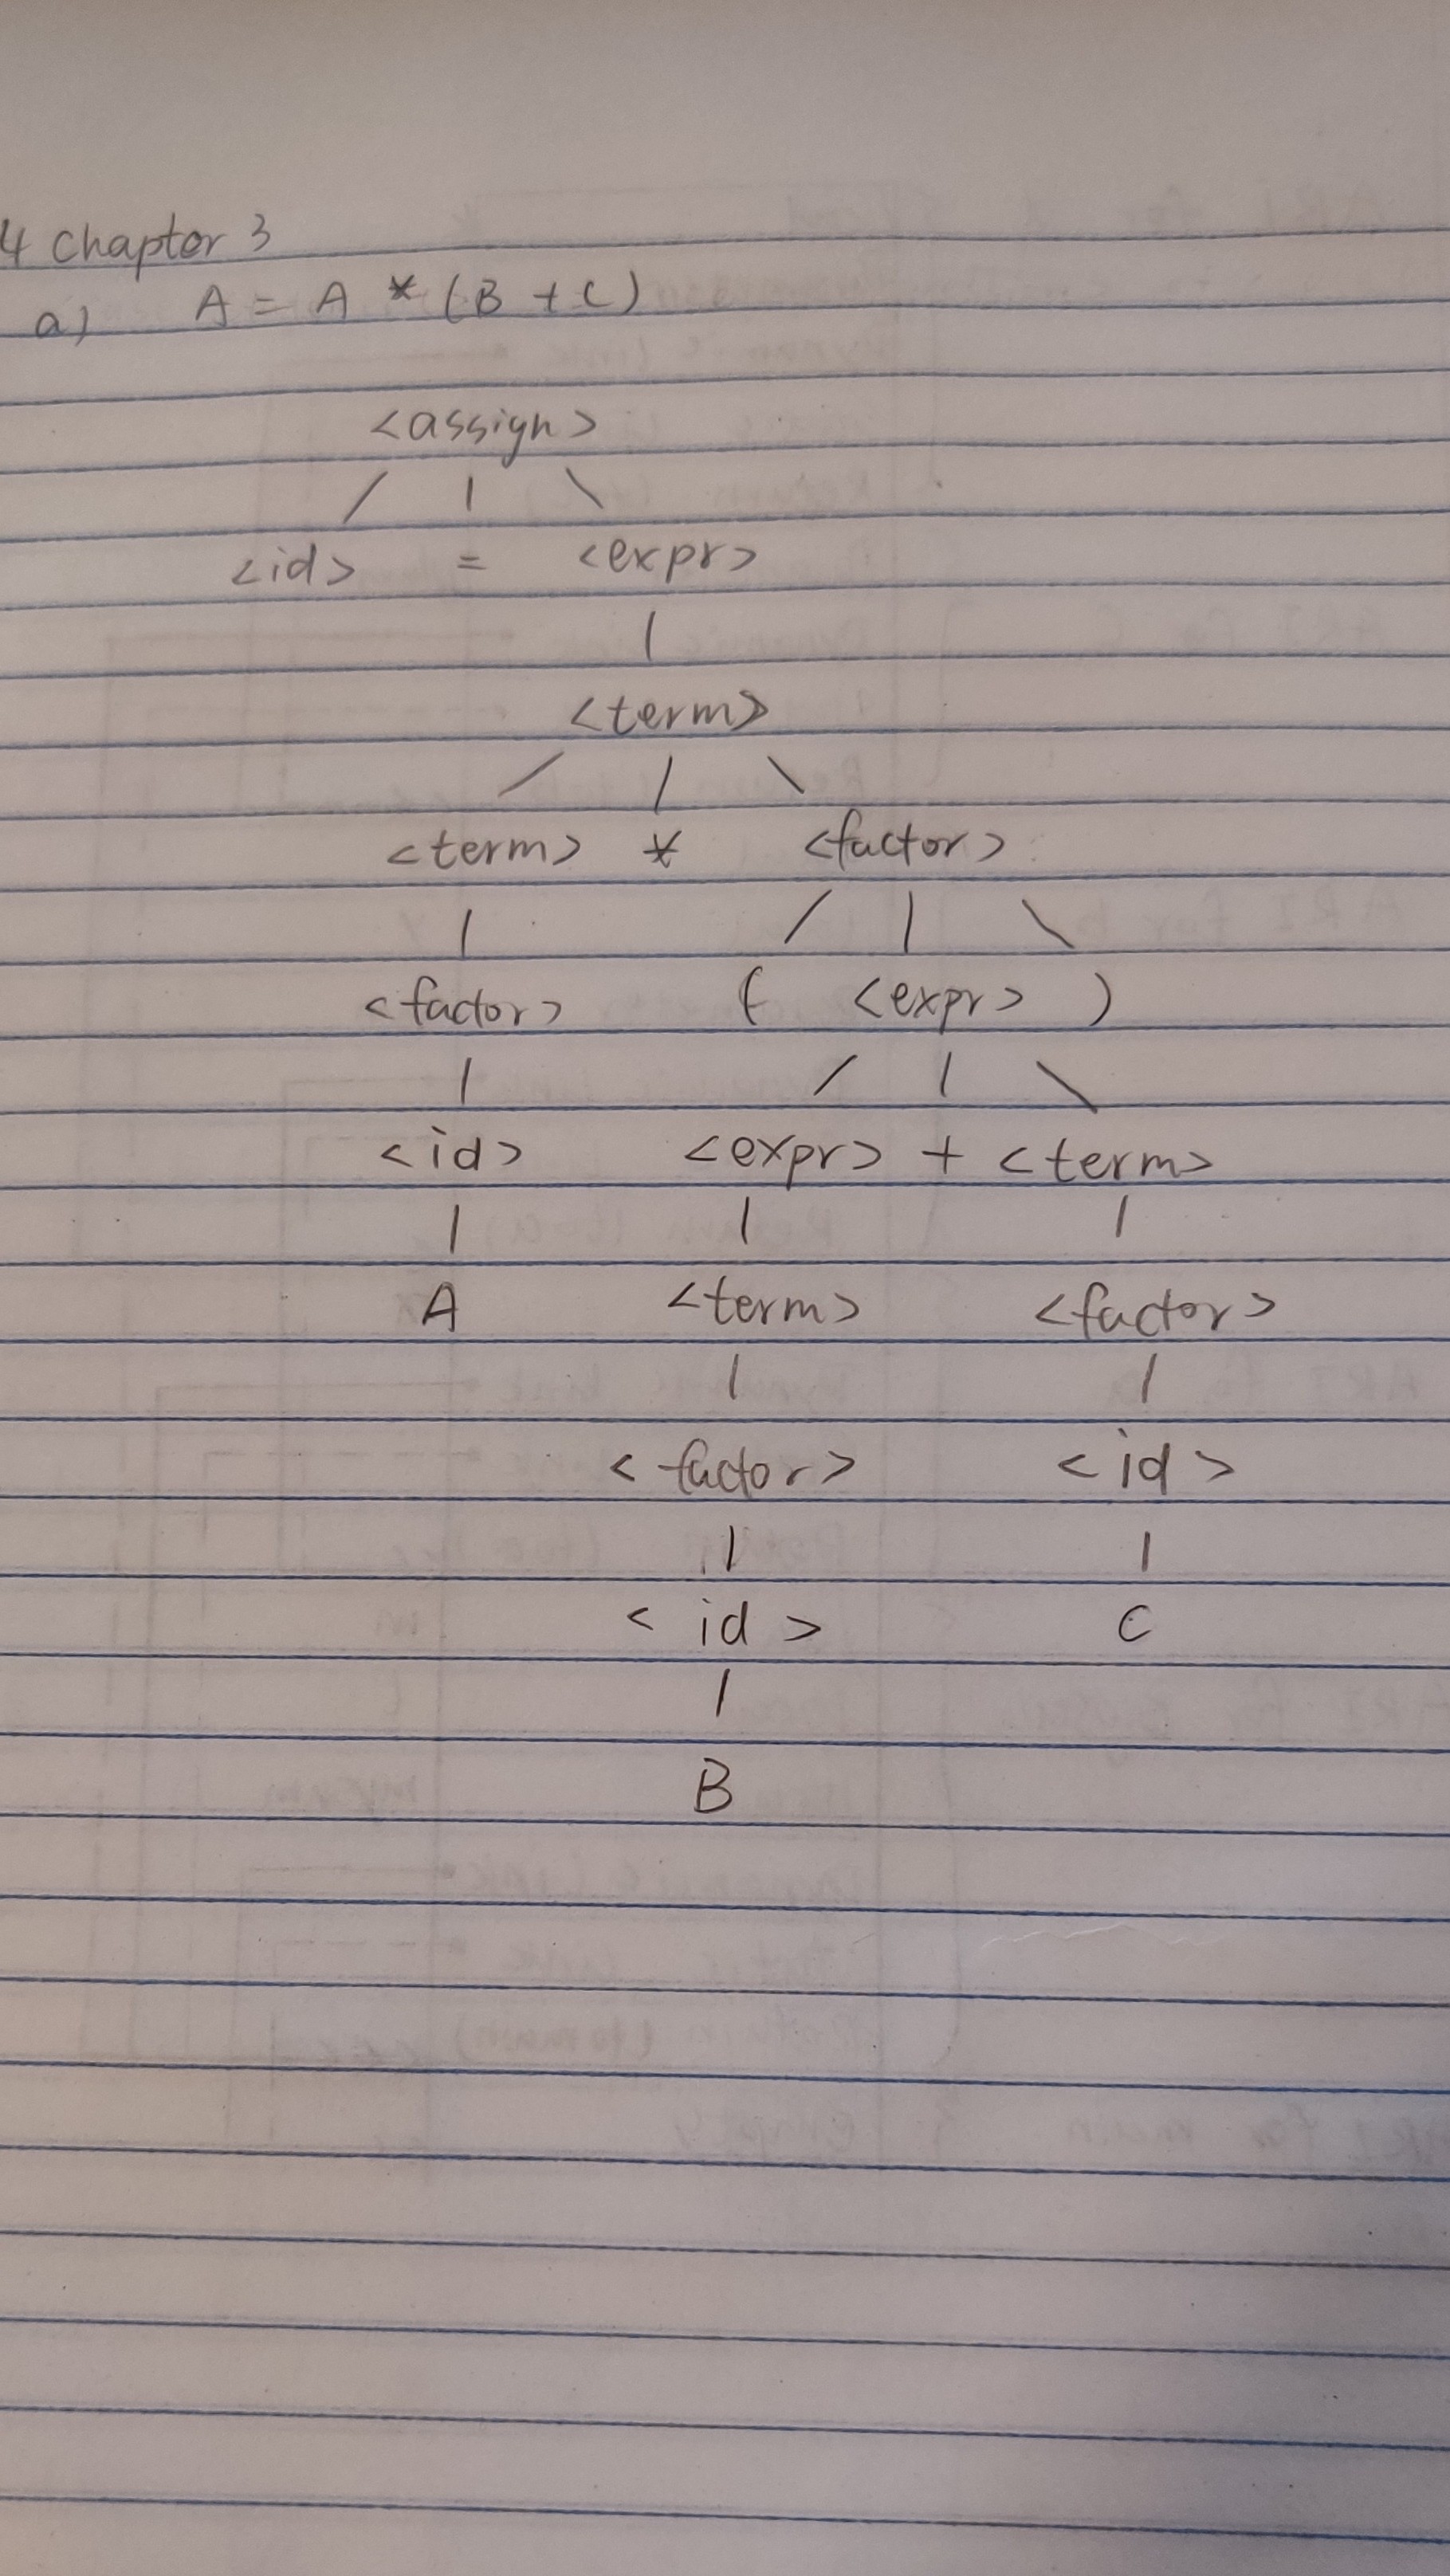 4 chaptor 3
a) A = A * (B + C)
<assign>
/ | \
<id> = <expr>
|
<term>
/ | \
<term> * <factor>
| / | \
<factor> ( <expr> )
| / | \
<id> <expr> + <term>
| | |
A <term> <factor>
| |
<factor> <id>
| |
<id> C
|
B